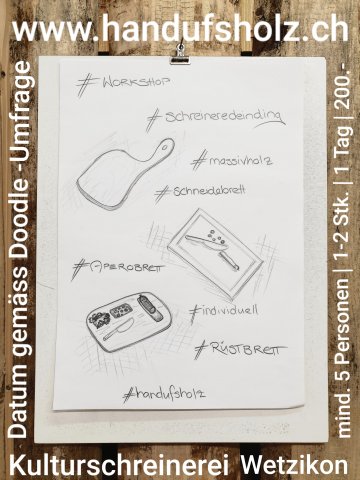 www.handufsholz.ch
Datum gemäss Doodle-Umfrage
#WORKSHOP
#schreineredeinding
#massivholz
#schneidebrett
#APEROBRETT
#individuell
#RÜSTBRETT
#handufsholz
mind. 5 Personen | 1-2 Stk. | 1 Tag | 200.-
Kulturschreinerei Wetzikon